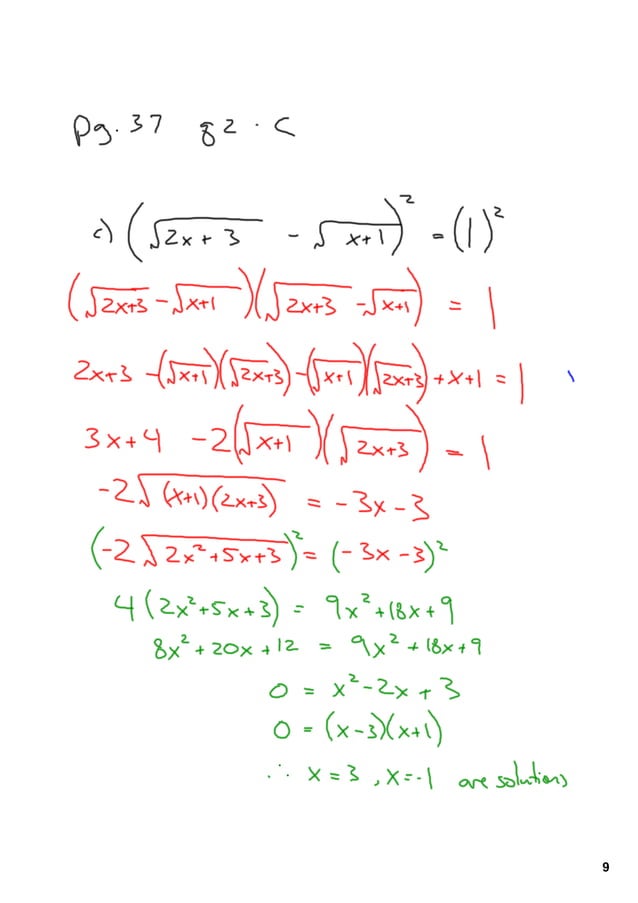 Pg. 37 q2. c
c) (√(2x+3) - √(x+1))² = (1)²
(√(2x+3) - √(x+1))(√(2x+3) - √(x+1)) = 1
2x+3 - (√(x+1))(√(2x+3)) - (√(x+1))(√(2x+3)) + x+1 = 1
3x+4 - 2(√(x+1))(√(2x+3)) = 1
-2√((x+1)(2x+3)) = -3x-3
(-2√(2x²+5x+3))² = (-3x-3)²
4(2x²+5x+3) = 9x²+18x+9
8x²+20x+12 = 9x²+18x+9
0 = x²-2x+3
0 = (x-3)(x+1)
∴ x=3, x=-1 are solutions
9